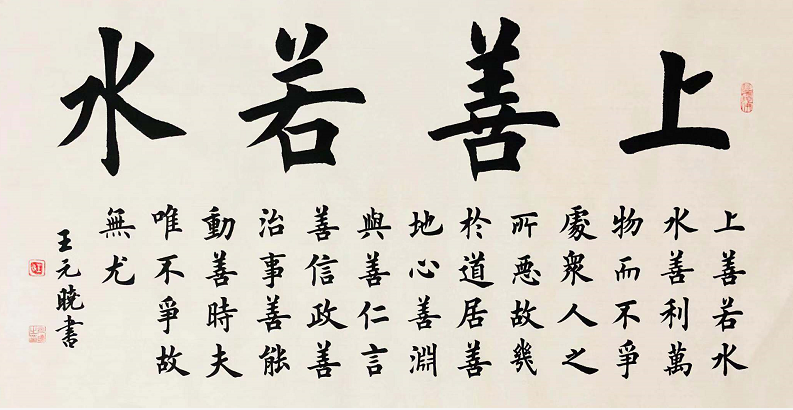 上善若水
上善若水
水善利萬
物而不爭
處衆人之
所惡故幾
於道居善
地心善淵
與善仁言
善信政善
治事善能
動善時夫
唯不爭故
無尤
王元曉書